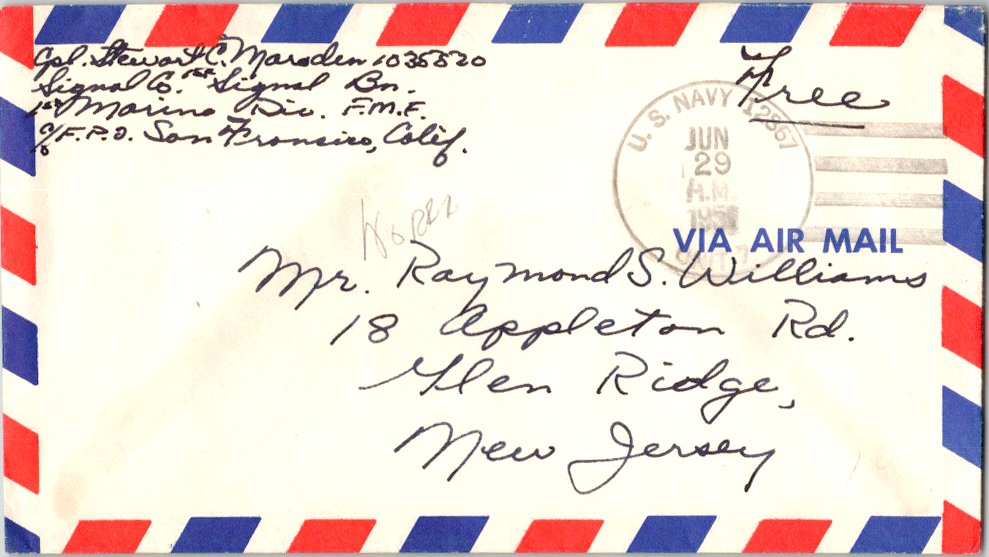 Cpl. Stewart C. Marsden 1035520
Signal Co. 1st Signal Bn.
1st Marine Div. F.M.F.
c/o F.P.O. San Fransisco, Calif.
Free
U.S. NAVY 12867
JUN
29
A.M.
VIA AIR MAIL
Mr. Raymond S. Williams
18 Appleton Rd.
Glen Ridge,
New Jersey